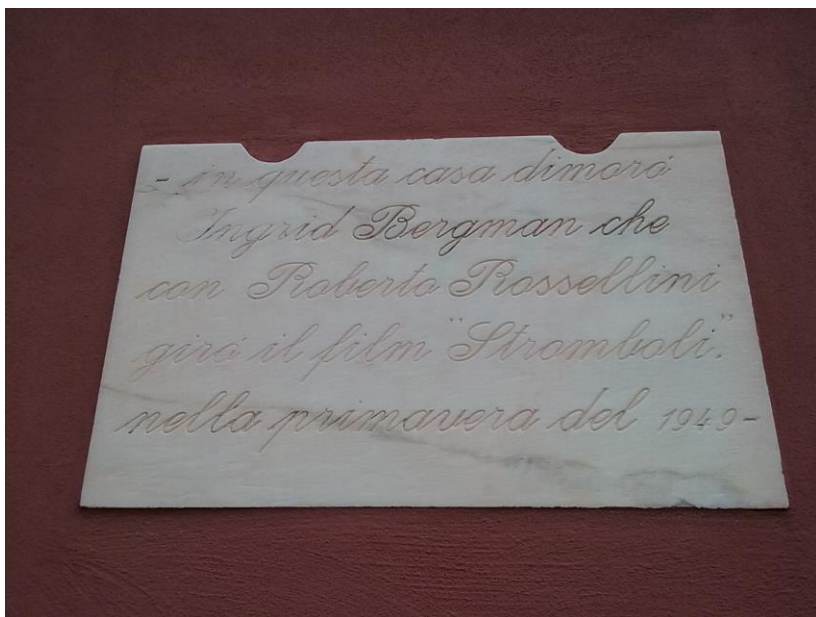 - in questa casa dimoró
Ingrid Bergman che
con Roberto Rossellini
giró il film "Stromboli".
nella primavera del 1949-